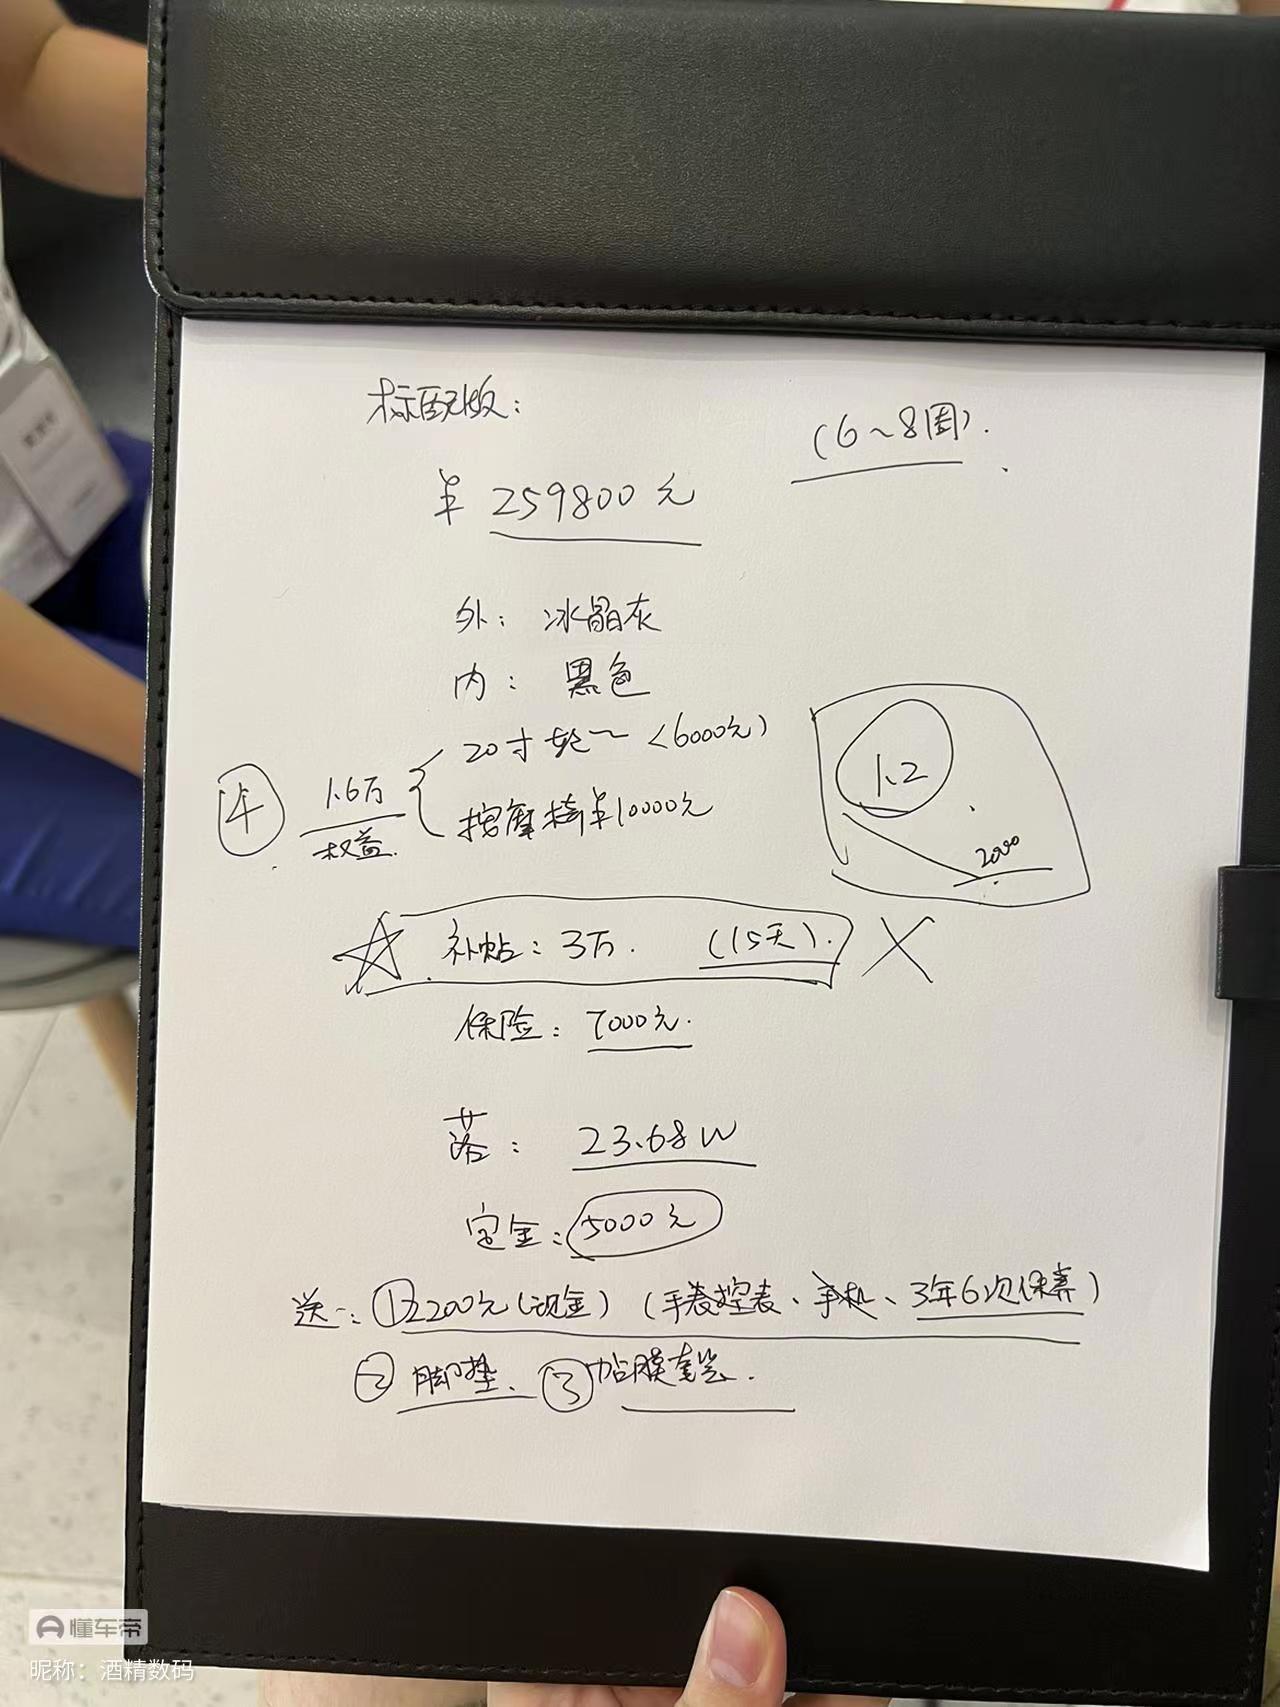 标配版:
(6~8周).
¥ 259800元
外: 冰晶灰
内: 黑色
20寸轮~ <6000元)
1.2
1.6万
权益.
按摩椅¥10000元
2000
补帖: 3万. (15天).
保险: 7000元.
落: 23.68W
定金: 5000元
送: ①2200元(现金) (手表控表、手机、3年6次保养)
② 脚垫、③贴膜套装.
懂车帝
昵称: 酒精数码